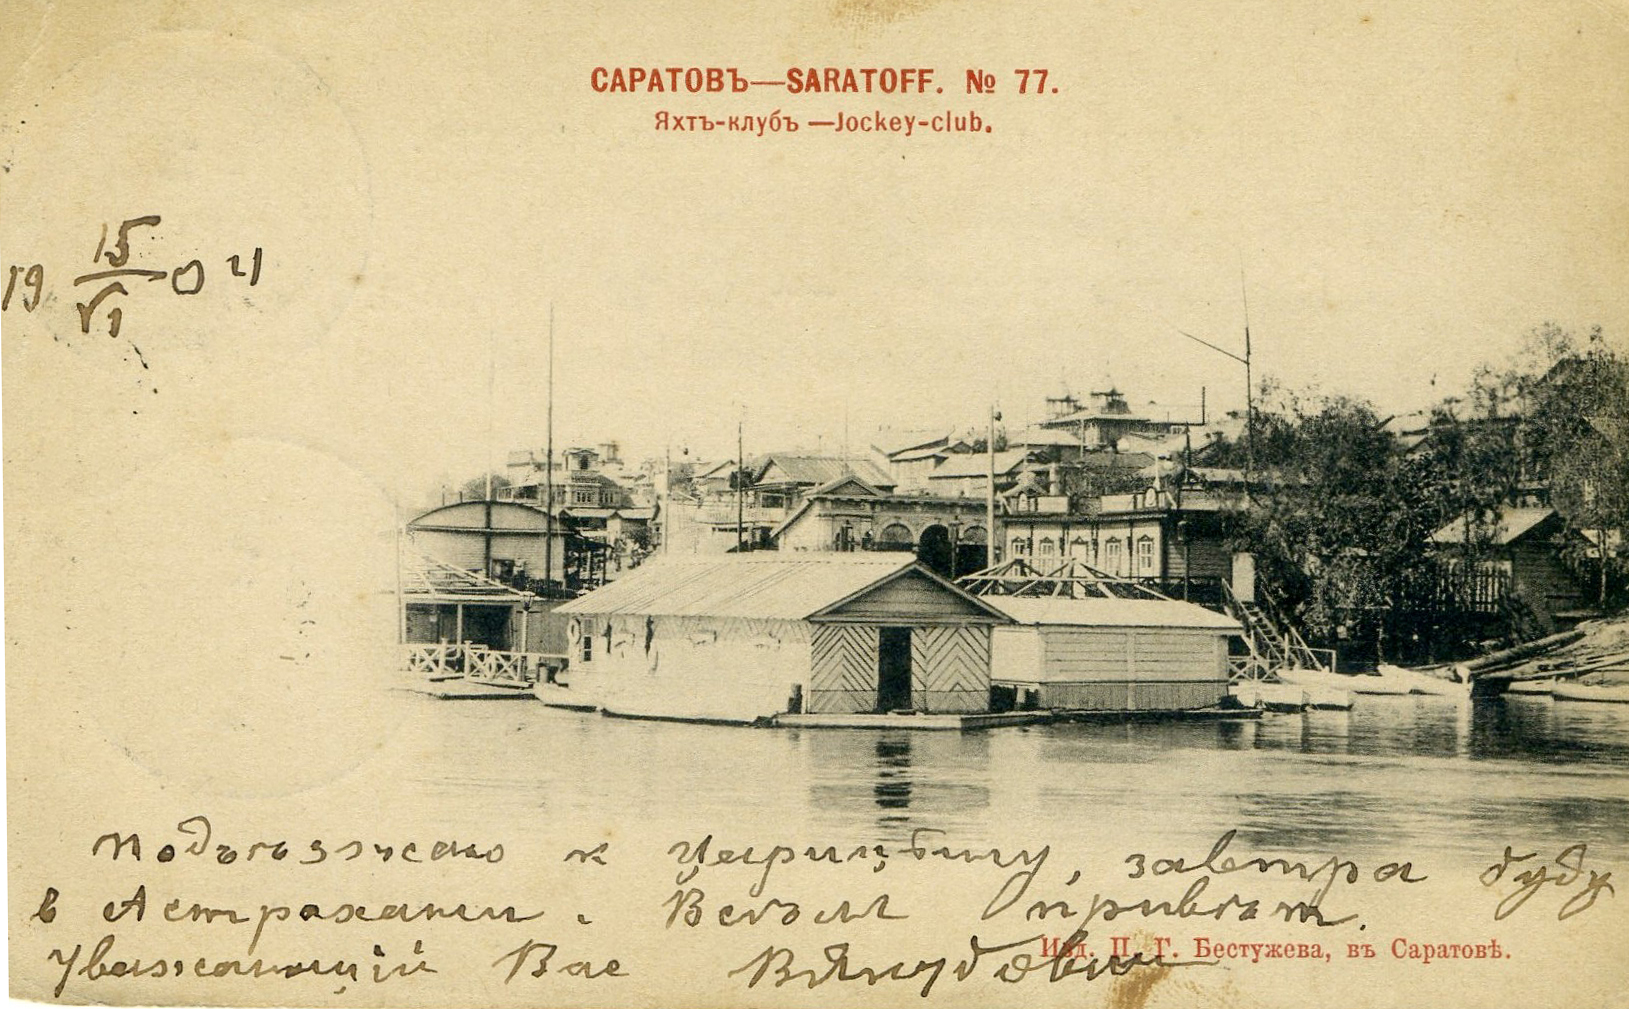 САРАТОВЪ—SARATOFF. № 77.
Яхтъ-клубъ —Jockey-club.
19 15/VI 04
Подъѣзжаю к Царицыну, завтра буду
в Астрахани. Всѣм привѣт.
Уважающий Вас
Изд. П. Г. Бестужева, въ Саратовѣ.